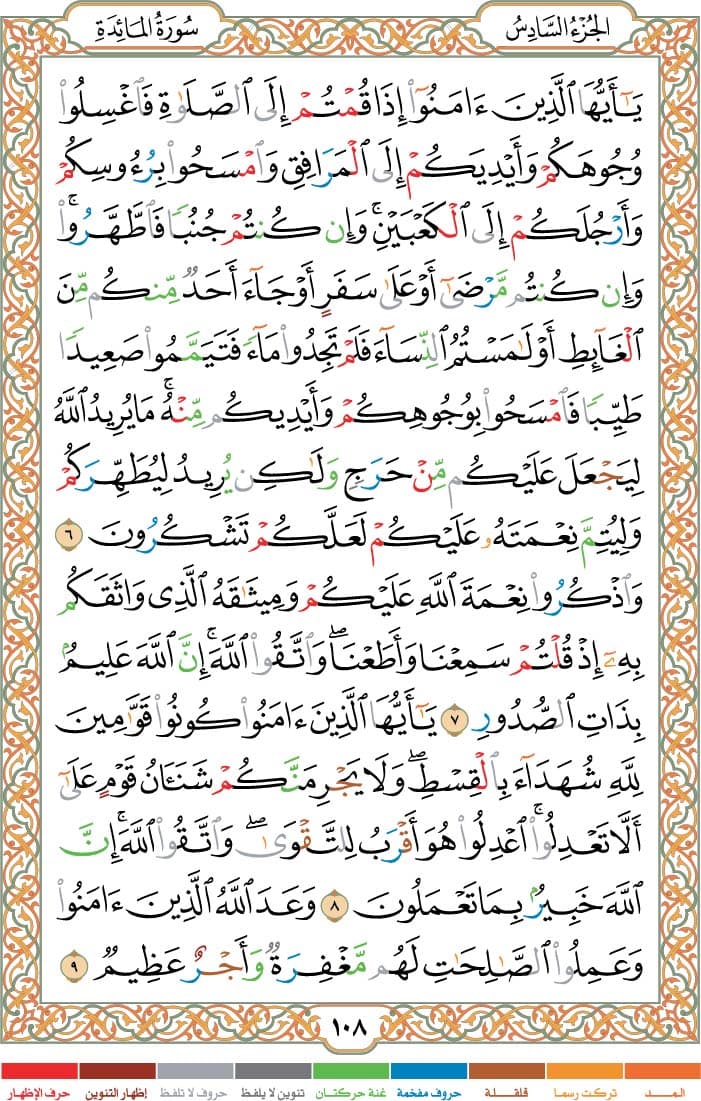 الجُزْءُ السَّادِسُ
سُورَةُ المَائِدَةِ
يَٰٓأَيُّهَا ٱلَّذِينَ ءَامَنُوٓا۟ إِذَا قُمْتُمْ إِلَى ٱلصَّلَوٰةِ فَٱغْسِلُوا۟
وُجُوهَكُمْ وَأَيْدِيَكُمْ إِلَى ٱلْمَرَافِقِ وَٱمْسَحُوا۟ بِرُءُوسِكُمْ
وَأَرْجُلَكُمْ إِلَى ٱلْكَعْبَيْنِ ۚ وَإِن كُنتُمْ جُنُبًا فَٱطَّهَّرُوا۟ ۚ
وَإِن كُنتُم مَّرْضَىٰٓ أَوْ عَلَىٰ سَفَرٍ أَوْ جَآءَ أَحَدٌ مِّنكُم مِّنَ
ٱلْغَآئِطِ أَوْ لَٰمَسْتُمُ ٱلنِّسَآءَ فَلَمْ تَجِدُوا۟ مَآءً فَتَيَمَّمُوا۟ صَعِيدًا
طَيِّبًا فَٱمْسَحُوا۟ بِوُجُوهِكُمْ وَأَيْدِيكُم مِّنْهُ ۚ مَا يُرِيدُ ٱللَّهُ
لِيَجْعَلَ عَلَيْكُم مِّنْ حَرَجٍ وَلَٰكِن يُرِيدُ لِيُطَهِّرَكُمْ
وَلِيُتِمَّ نِعْمَتَهُۥ عَلَيْكُمْ لَعَلَّكُمْ تَشْكُرُونَ ٦
وَٱذْكُرُوا۟ نِعْمَةَ ٱللَّهِ عَلَيْكُمْ وَمِيثَٰقَهُ ٱلَّذِى وَاثَقَكُم
بِهِۦٓ إِذْ قُلْتُمْ سَمِعْنَا وَأَطَعْنَا ۖ وَٱتَّقُوا۟ ٱللَّهَ ۚ إِنَّ ٱللَّهَ عَلِيمٌۢ
بِذَاتِ ٱلصُّدُورِ ٧ يَٰٓأَيُّهَا ٱلَّذِينَ ءَامَنُوا۟ كُونُوا۟ قَوَّٰمِينَ
لِلَّهِ شُهَدَآءَ بِٱلْقِسْطِ ۖ وَلَا يَجْرِمَنَّكُمْ شَنَـَٔانُ قَوْمٍ عَلَىٰٓ
أَلَّا تَعْدِلُوا۟ ۚ ٱعْدِلُوا۟ هُوَ أَقْرَبُ لِلتَّقْوَىٰ ۖ وَٱتَّقُوا۟ ٱللَّهَ ۚ إِنَّ
ٱللَّهَ خَبِيرٌۢ بِمَا تَعْمَلُونَ ٨ وَعَدَ ٱللَّهُ ٱلَّذِينَ ءَامَنُوا۟
وَعَمِلُوا۟ ٱلصَّٰلِحَٰتِ لَهُم مَّغْفِرَةٌ وَأَجْرٌ عَظِيمٌ ٩
١٠٨
المــــد تركت رسما قلقلة حروف مفخمة غنة حركتان تنوين لا يلفظ حروف لا تلفظ إظهار التنوين حرف الإظهار